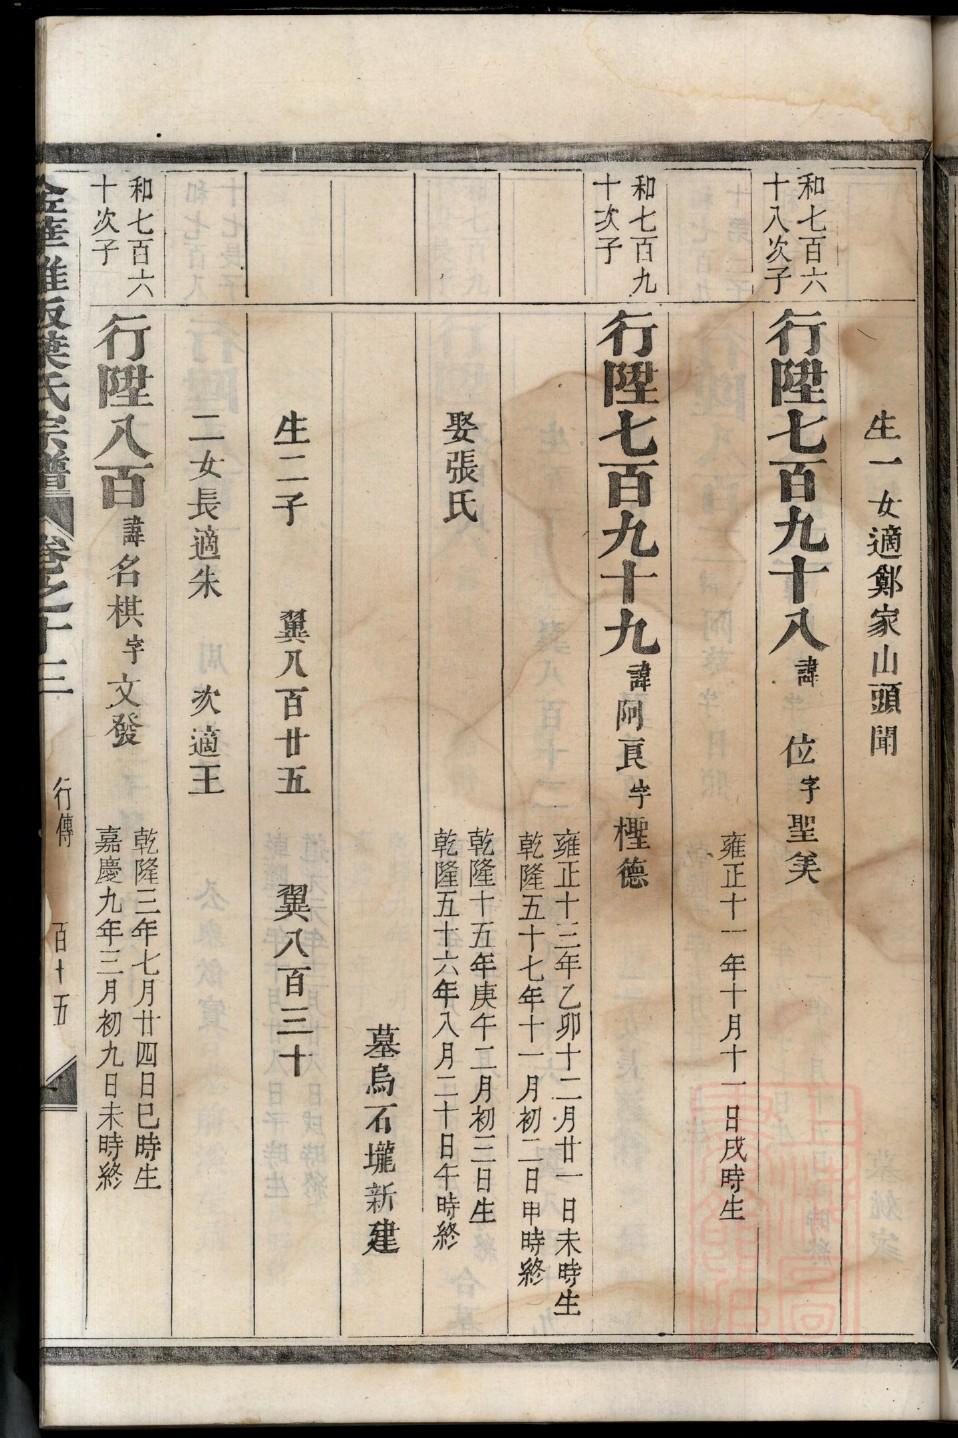 生一女適鄭家山頭聞
和七百六
十八次子
行陞七百九十八諱 位字聖美
雍正十一年十月十一日戌時生
和七百九
十次子
行陞七百九十九諱阿良字樫德
雍正十三年乙卯十二月廿一日未時生
乾隆五十七年十一月初二日甲時終
娶張氏
乾隆十五年庚午二月初三日生
乾隆五十六年八月二十日午時終
墓烏石壠新建
生二子 翼八百廿五 翼八百三十
二女長適朱 次適王
和七百六
十次子
行陞八百諱名棋字文發
乾隆三年七月廿四日巳時生
嘉慶九年三月初九日未時終
葉氏宗譜 卷之十三 行傳 百十五